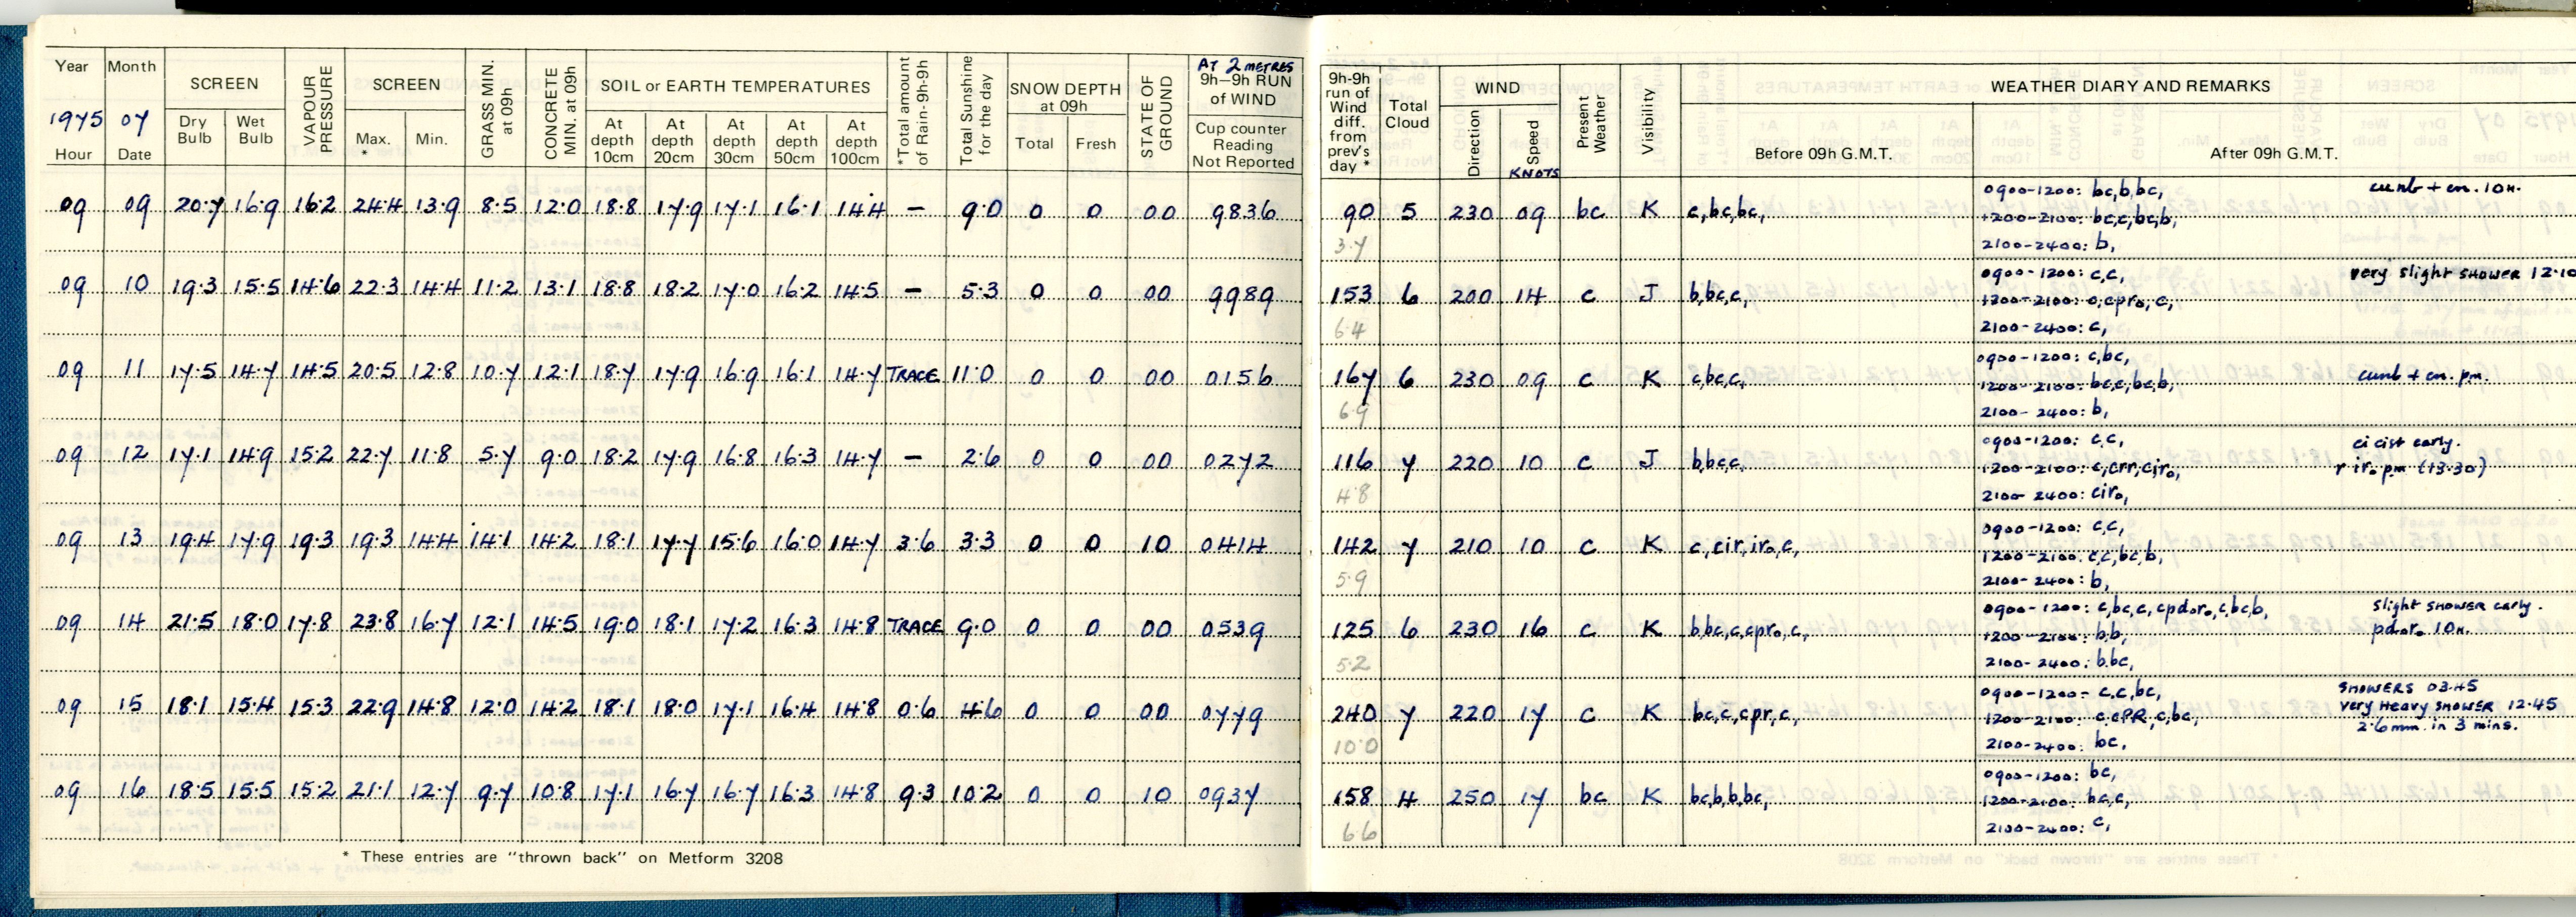 Year Month SCREEN VAPOUR PRESSURE SCREEN GRASS MIN. at 09h CONCRETE MIN. at 09h SOIL or EARTH TEMPERATURES *Total amount of Rain-9h-9h Total Sunshine for the day SNOW DEPTH at 09h STATE OF GROUND AT 2 METRES 9h-9h RUN of WIND
1975 07 Dry Bulb Wet Bulb Max. * Min. At depth 10cm At depth 20cm At depth 30cm At depth 50cm At depth 100cm Total Fresh Cup counter Reading Not Reported
Hour Date
09 09 20.7 16.9 16.2 24.4 13.9 8.5 12.0 18.8 17.9 17.1 16.1 14.4 – 9.0 0 0 00 9836
09 10 19.3 15.5 14.6 22.3 14.4 11.2 13.1 18.8 18.2 17.0 16.2 14.5 – 5.3 0 0 00 9989
09 11 17.5 14.7 14.5 20.5 12.8 10.7 12.1 18.7 17.9 16.9 16.1 14.7 TRACE 11.0 0 0 00 0156
09 12 17.1 14.9 15.2 22.7 11.8 5.7 9.0 18.2 17.9 16.8 16.3 14.7 – 2.6 0 0 00 0272
09 13 19.4 17.9 19.3 19.3 14.4 14.1 14.2 18.1 17.7 15.6 16.0 14.7 3.6 3.3 0 0 10 0414
09 14 21.5 18.0 17.8 23.8 16.7 12.1 14.5 19.0 18.1 17.2 16.3 14.8 TRACE 9.0 0 0 00 0539
09 15 18.1 15.4 15.3 22.9 14.8 12.0 14.2 18.1 18.0 17.1 16.4 14.8 0.6 4.6 0 0 00 0779
09 16 18.5 15.5 15.2 21.1 12.7 9.7 10.8 17.1 16.7 16.7 16.3 14.8 9.3 10.2 0 0 10 0937
* These entries are "thrown back" on Metform 3208
9h-9h run of Wind diff. from prev's day * Total Cloud WIND Present Weather Visibility WEATHER DIARY AND REMARKS
Direction Speed KNOTS Before 09h G.M.T. After 09h G.M.T.
0900-1200: bc,b,bc, cunb + cn. 10H.
90 5 230 09 bc K c,bc,bc, 1200-2100: bc,c,bc,b,
3.7 2100-2400: b,
0900-1200: c,c, very slight SHOWER 12.10
153 6 200 14 c J b,bc,c, 1200-2100: c,cpr₀,c,
6.4 2100-2400: c,
0900-1200: c,bc,
167 6 230 09 c K c,bc,c, 1200-2100: bc,c,bc,b, cunb + cn. pm.
6.9 2100-2400: b,
0900-1200: c,c, ci cist early.
116 7 220 10 c J b,bc,c, 1200-2100: c,crr,cir₀, r ir₀ pm (13.30)
4.8 2100-2400: cir₀,
0900-1200: c,c,
142 7 210 10 c K c,cir,ir₀,c, 1200-2100: c,c,bc,b,
5.9 2100-2400: b,
0900-1200: c,bc,c,cpd₀r₀,c,bc,b, slight SHOWER early.
125 6 230 16 c K b,bc,c,cpr₀,c, 1200-2100: b,b, pd₀r₀ 10H.
5.2 2100-2400: b,bc,
0900-1200- c,c,bc, SHOWERS 03.45
240 7 220 17 c K bc,c,cpr,c, 1200-2100: c,cPR,c,bc, very HEAVY SHOWER 12.45
10.0 2100-2400: bc, 2.6mm. in 3 mins.
0900-1200: bc,
158 4 250 17 bc K bc,b,b,bc, 1200-2100: bc,c,
6.6 2100-2400: c,